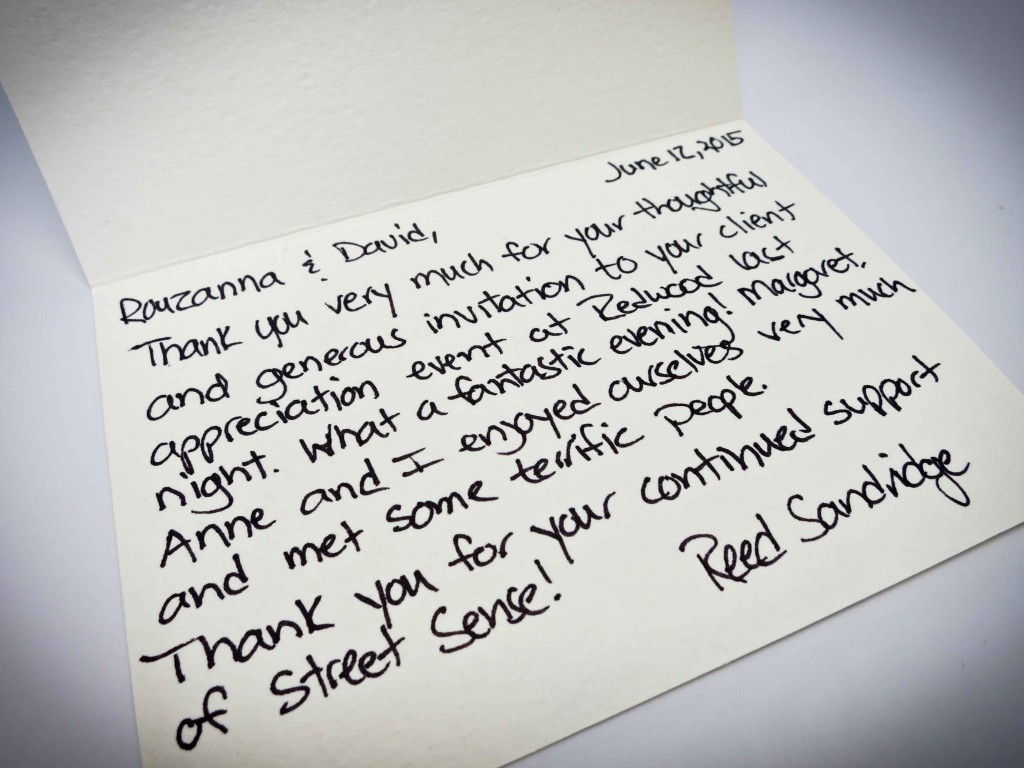 June 12, 2015
Rouzanna & David,
Thank you very much for your thoughtful
and generous invitation to your client
appreciation event at Redwood last
night. What a fantastic evening! Margaret,
Anne and I enjoyed ourselves very much
and met some terrific people.
Thank you for your continued support
of Street Sense!
Reed Sandridge